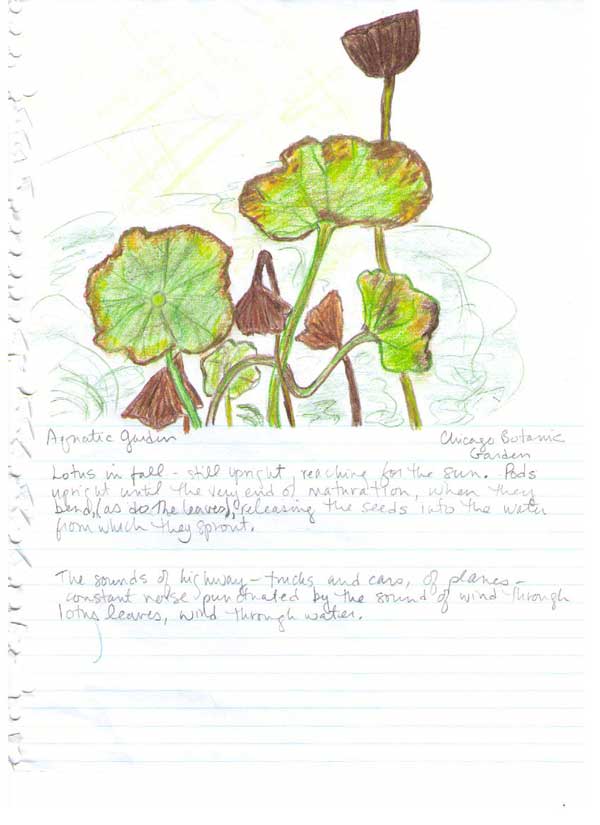 Aquatic Garden
Chicago Botanic
Garden
Lotus in fall - still upright, reaching for the sun. Pods
upright until the very end of maturation, when they
bend, (as do the leaves), releasing the seeds into the water
from which they sprout.
The sounds of highway - trucks and cars, of planes -
constant noise punctuated by the sound of wind through
lotus leaves, wind through water.